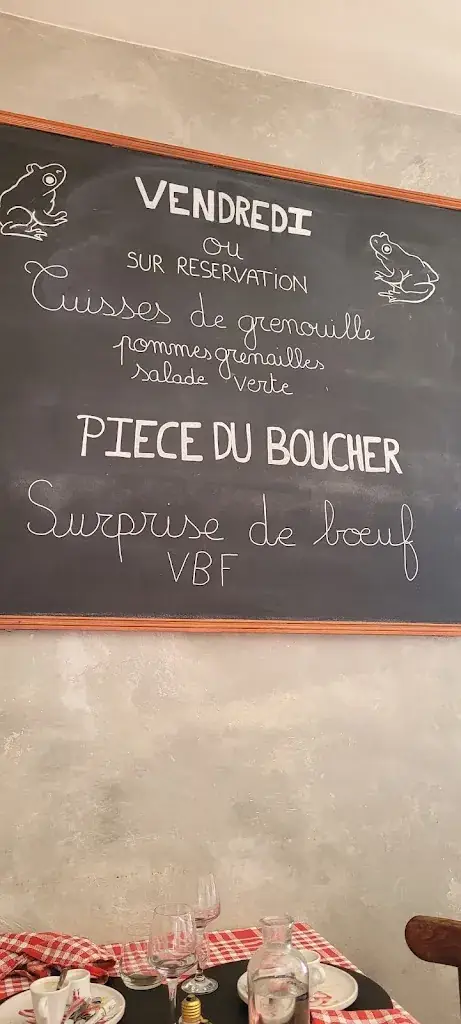 VENDREDI
ou
SUR RESERVATION
Cuisses de grenouille
pommes grenailles
salade verte
PIECE DU BOUCHER
Surprise de bœuf
VBF